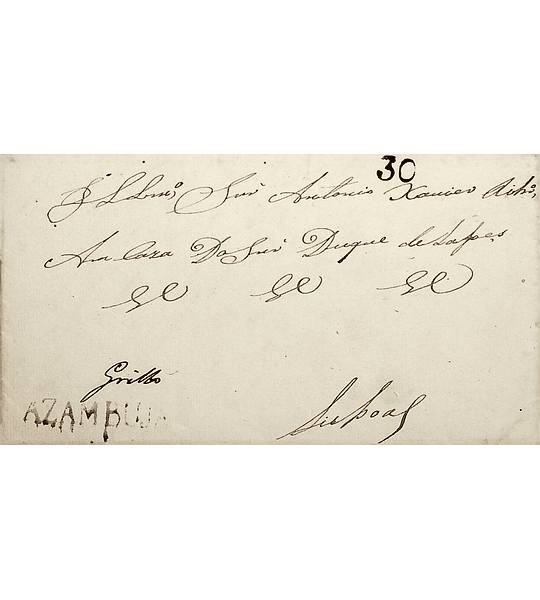 30
Illmo Snr Antonio Xavier
Na Caza Do Snr Duque de Lafoes
G.e G.e G.e
Grillo
AZAMBUJA
Lisboa